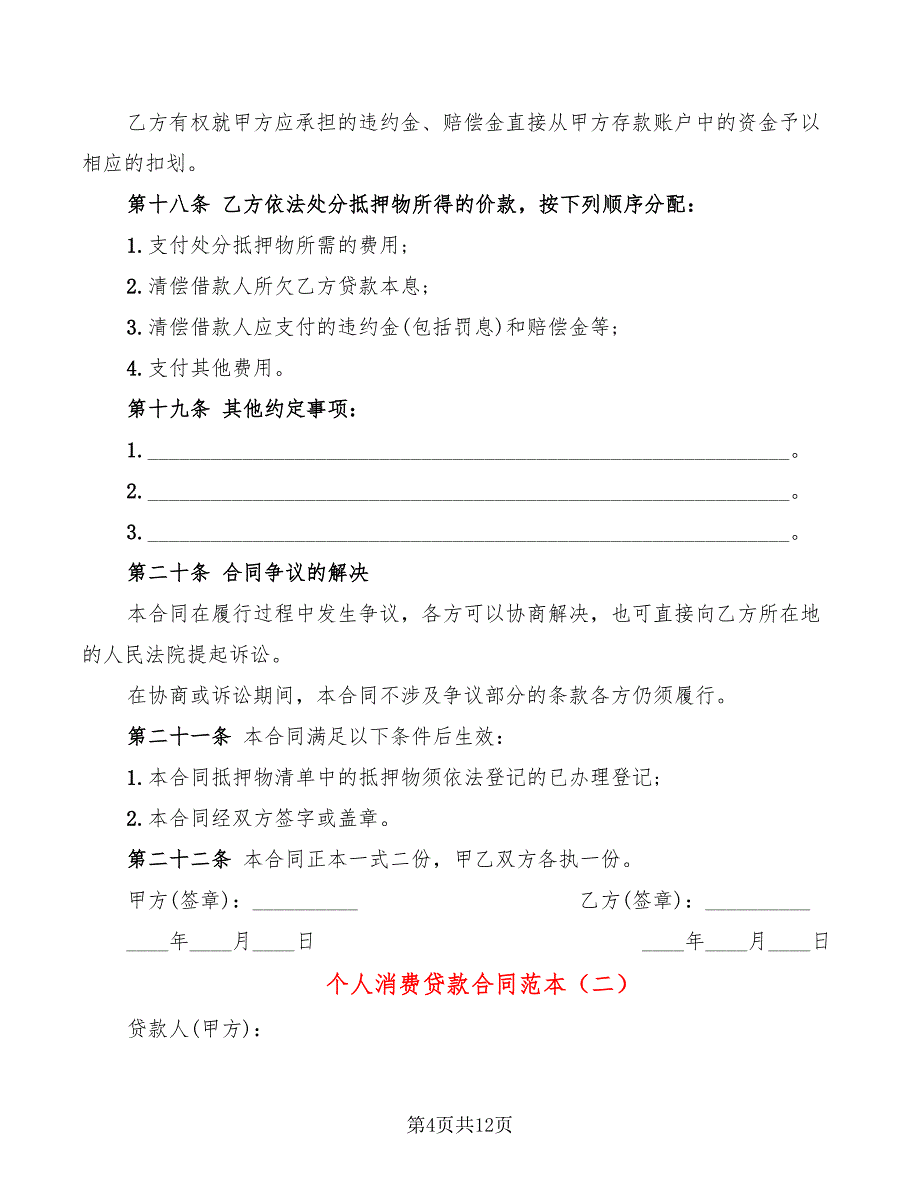 乙方有权就甲方应承担的违约金、赔偿金直接从甲方存款账户中的资金予以
相应的扣划。
第十八条 乙方依法处分抵押物所得的价款，按下列顺序分配：
1.支付处分抵押物所需的费用;
2.清偿借款人所欠乙方贷款本息;
3.清偿借款人应支付的违约金(包括罚息)和赔偿金等;
4.支付其他费用。
第十九条 其他约定事项：
1.______________________________________________________________。
2.______________________________________________________________。
3.______________________________________________________________。
第二十条 合同争议的解决
本合同在履行过程中发生争议，各方可以协商解决，也可直接向乙方所在地
的人民法院提起诉讼。
在协商或诉讼期间，本合同不涉及争议部分的条款各方仍须履行。
第二十一条 本合同满足以下条件后生效：
1.本合同抵押物清单中的抵押物须依法登记的已办理登记;
2.本合同经双方签字或盖章。
第二十二条 本合同正本一式二份，甲乙双方各执一份。
甲方(签章)：__________ 乙方(签章)：__________
____年____月____日 ____年____月____日
个人消费贷款合同范本（二）
贷款人(甲方)：
第4页共12页